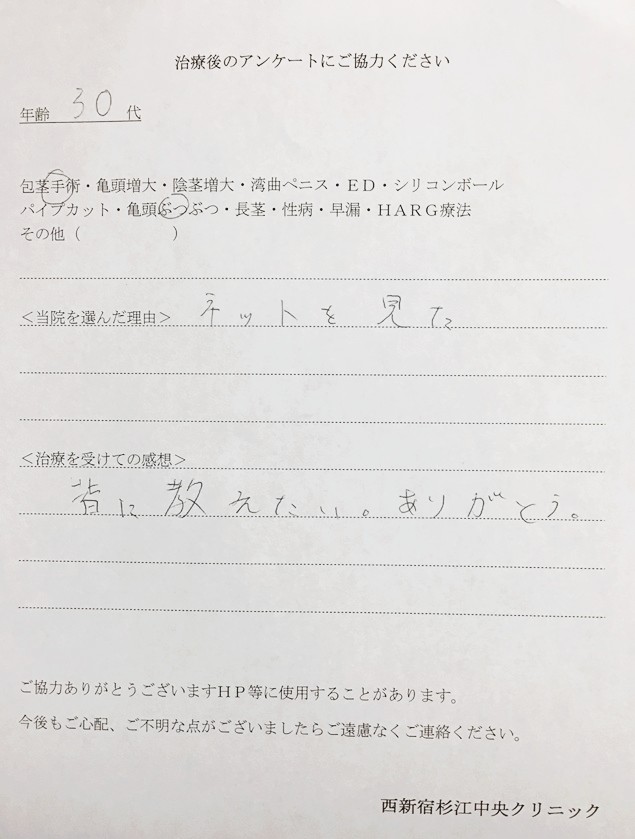 治療後のアンケートにご協力ください
年齢 30 代
包茎手術・亀頭増大・陰茎増大・湾曲ペニス・ED・シリコンボール
パイプカット・亀頭ぶつぶつ・長茎・性病・早漏・HARG療法
その他（　　　　　）
＜当院を選んだ理由＞ ネットを見た
＜治療を受けての感想＞
皆に教えたい。ありがとう。
ご協力ありがとうございますHP等に使用することがあります。
今後もご心配、ご不明な点がございましたらご遠慮なくご連絡ください。
西新宿杉江中央クリニック